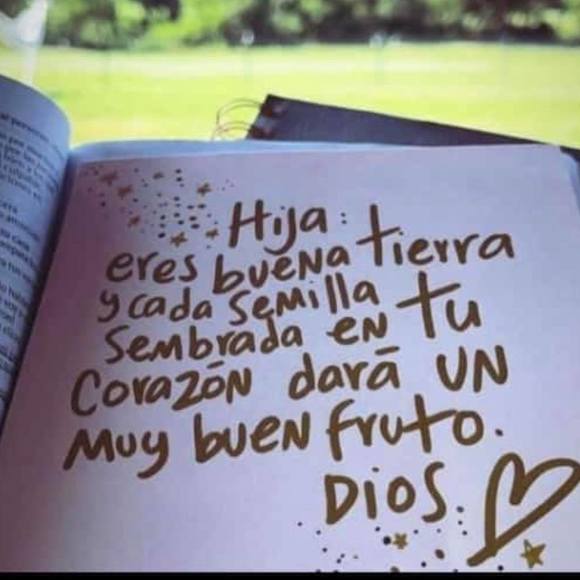 Hija:
eres buena tierra
y cada semilla
sembrada en tu
corazón dará un
muy buen fruto.
Dios.